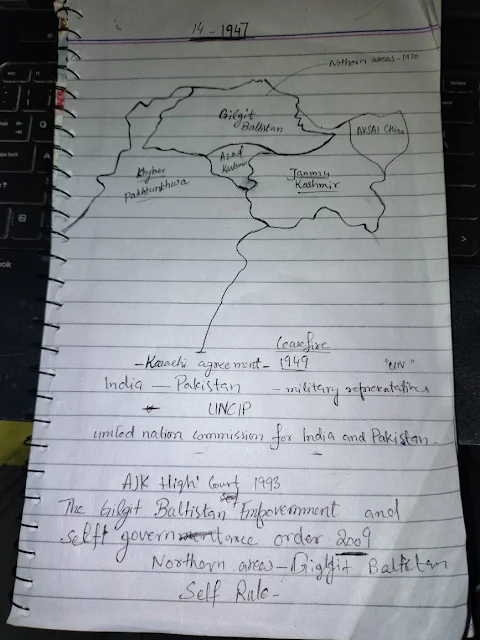 14-1947
Nothern areas-1970
Gilgit
Baltistan
AKSAI China
Azad
Kashmir
Khyber
Pakhtunkhwa
Jammu
Kashmir
Ceasefire
-Karachi agreement- 1949 "UN"
India — Pakistan - military representatives
UNCIP
united nation commission for India and Pakistan.
AJK High Court 1993
The Gilgit Baltistan Empoverment and
self governance order 2009
Northern areas - Gilgit Baltistan
Self Rule-